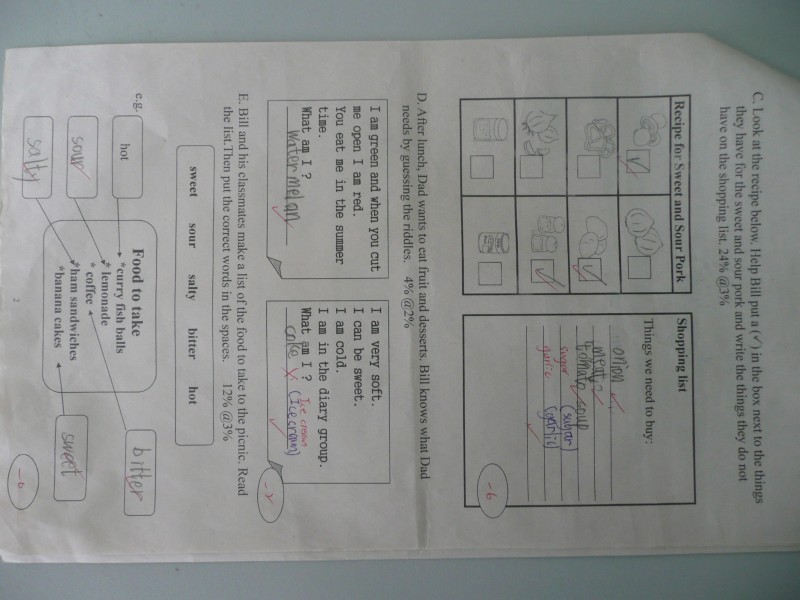 C. Look at the recipe below. Help Bill put a (✓) in the box next to the things
they have for the sweet and sour pork and write the things they do not
have on the shopping list. 24% @3%
Recipe for Sweet and Sour Pork
Shopping list
Things we need to buy:
onion
meat
tomato soup
sugar (sugar)
garlic (garlic)
-6
D. After lunch, Dad wants to eat fruit and desserts. Bill knows what Dad
needs by guessing the riddles. 4% @2%
I am green and when you cut
me open I am red.
You eat me in the summer
time.
What am I ?
watermelan
I am very soft.
I can be sweet.
I am cold.
I am in the diary group.
What am I ? Ice cream
cake (Ice cream)
E. Bill and his classmates make a list of the food to take to the picnic. Read
the list. Then put the correct words in the spaces. 12% @3%
sweet sour salty bitter hot
e.g.
hot
sour
salty
Food to take
*curry fish balls
* lemonade
* coffee
*ham sandwiches
*banana cakes
bitter
sweet
2